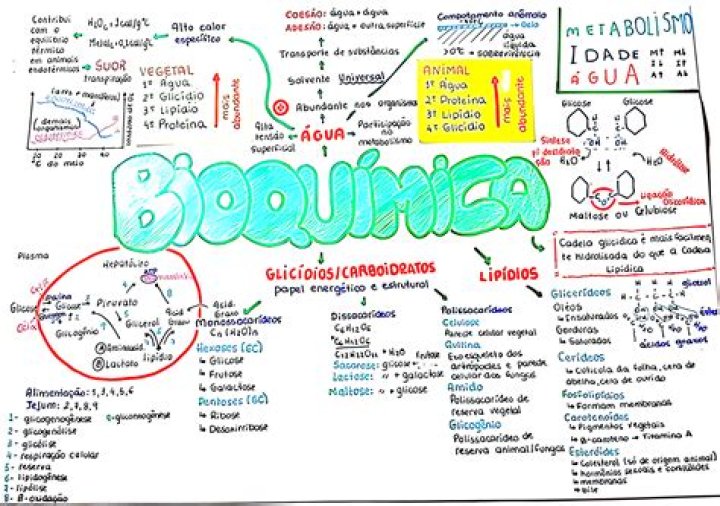 Contribui
com o
equilíbrio
térmico
em animais
endotérmicos
SUOR
transpiração
Alto calor
específico
COESÃO: água + água
ADESÃO: água + outra superfície
Transporte de substâncias
Solvente Universal
Abundante nos organismos
Alta
tensão
superficial
ÁGUA
Participação
no
metabolismo
Comportamento anômalo
Gelo
água
líquida
METABOLISMO
IDADE
ÁGUA
M↑ M↓
I↓ I↑
A↑ A↓
VEGETAL
1º Água
2º Glicídio
3º Lipídio
4º Proteína
mais
abundante
ANIMAL
1º Água
2º Proteína
3º Lipídio
4º Glicídio
mais
abundante
(demais
organismos)
10 20 30 40
°C do meio
Glicose Glicose
H₂O
Ligação
Glicosídica
Maltose ou Celubiose
BIOQUÍMICA
Cadeia glicídica é mais facilmen
te hidrolisada do que a Cadeia
Lipídica
Plasma
Hepatócito
Glicose
Glicose
Piruvato
Glicogênio
Glicerol
Acid.
Graxo
Acid.
Graxo
A Aminoácido
B Lactato
lipídio
Alimentação: 1,3,4,5,6
Jejum: 2,7,8,9
1- glicogenogênese
9- gliconeogênese
2- glicogenólise
3- glicólise
4- respiração celular
5- reserva
6- lipidogênese
7- lipólise
8- B-oxidação
GLICÍDIOS/CARBOIDRATOS
papel energético e estrutural
Monossacarídeos
Cn(H₂O)n
Hexoses (6C)
↳ Glicose
↳ Frutose
↳ Galactose
Pentoses (5C)
↳ Ribose
↳ Desoxirribose
Dissacarídeos
C₆H₁₂O₆
+C₆H₁₂O₆
C₁₂H₂₂O₁₁ + H₂O
Sacarose: glicose + frutose
Lactose: " + galactose
Maltose: " + glicose
Polissacarídeos
Celulose
Parede celular vegetal
Quitina
Exoesqueleto dos
artrópodes e parede
celular dos fungos
Amido
Polissacarídeo de
reserva vegetal
Glicogênio
Polissacarídeo de
reserva animal/fungos
LIPÍDIOS
Glicerídeos
Óleos
↳ Insaturados
Gorduras
↳ Saturadas
glicerol
ácidos graxos
Cerídeos
↳ Cutícula da folha, cera de
abelha, cera de ouvido
Fosfolipídios
↳ Formam membranas
Carotenoides
↳ Pigmentos vegetais
↳ β-caroteno → Vitamina A
Esteróides
↳ Colesterol (só de origem animal)
↳ hormônios sexuais e corticóides
↳ membranas
↳ bile